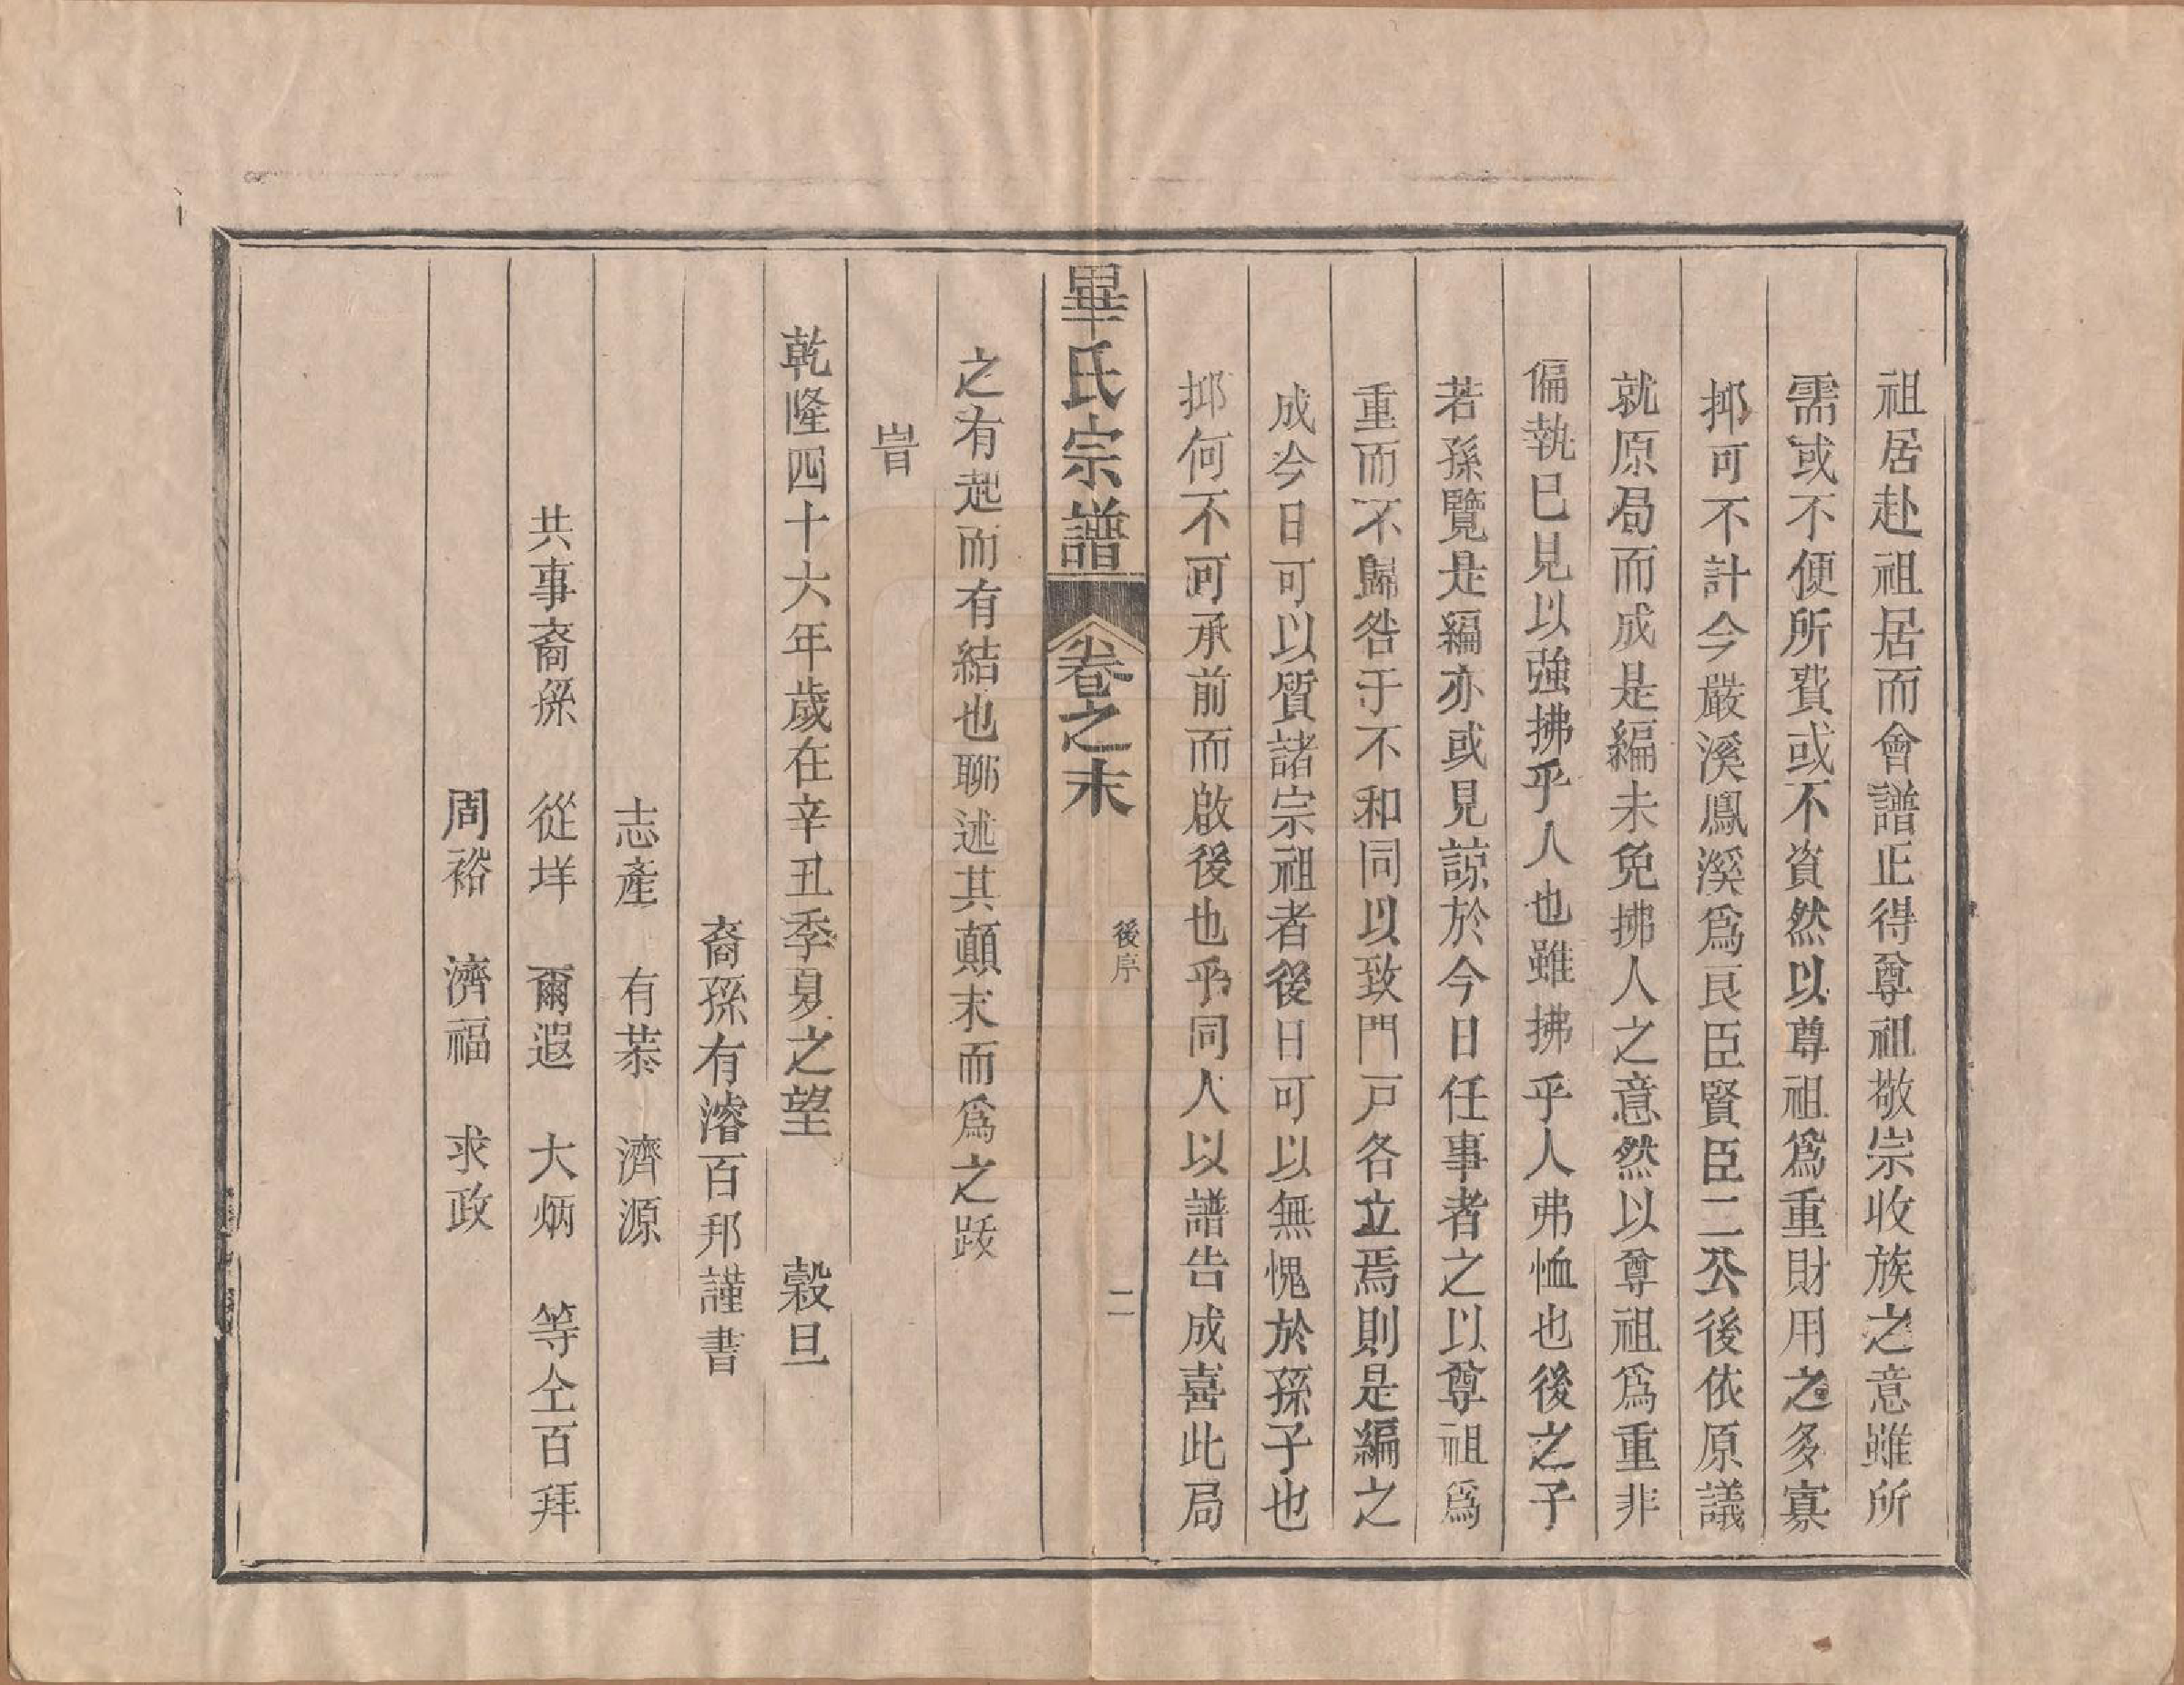 祖居赴祖居而會譜正得尊祖敬宗收族之意雖所
需或不便所費或不資然以尊祖爲重財用之多寡
抑可不計今嚴溪鳳溪爲良臣賢臣二公後依原議
就原局而成是編未免拂人之意然以尊祖爲重非
偏執已見以強拂乎人也雖拂乎人弗恤也後之子
若孫覽是編亦或見諒於今日任事者之以尊祖爲
重而不歸咎于不和同以致門戸各立焉則是編之
成今日可以質諸宗祖者後日可以無愧於孫子也
抑何不可承前而啟後也乎同人以譜告成喜此局
畢氏宗譜 卷之末 後序 二
之有起而有結也聊述其顛末而爲之跋
旹
乾隆四十六年歲在辛丑季夏之望 穀旦
裔孫有濬百邦謹書
志產 有恭 濟源
共事裔孫 從垟 爾遐 大炳 等仝百拜
周裕 濟福 求政